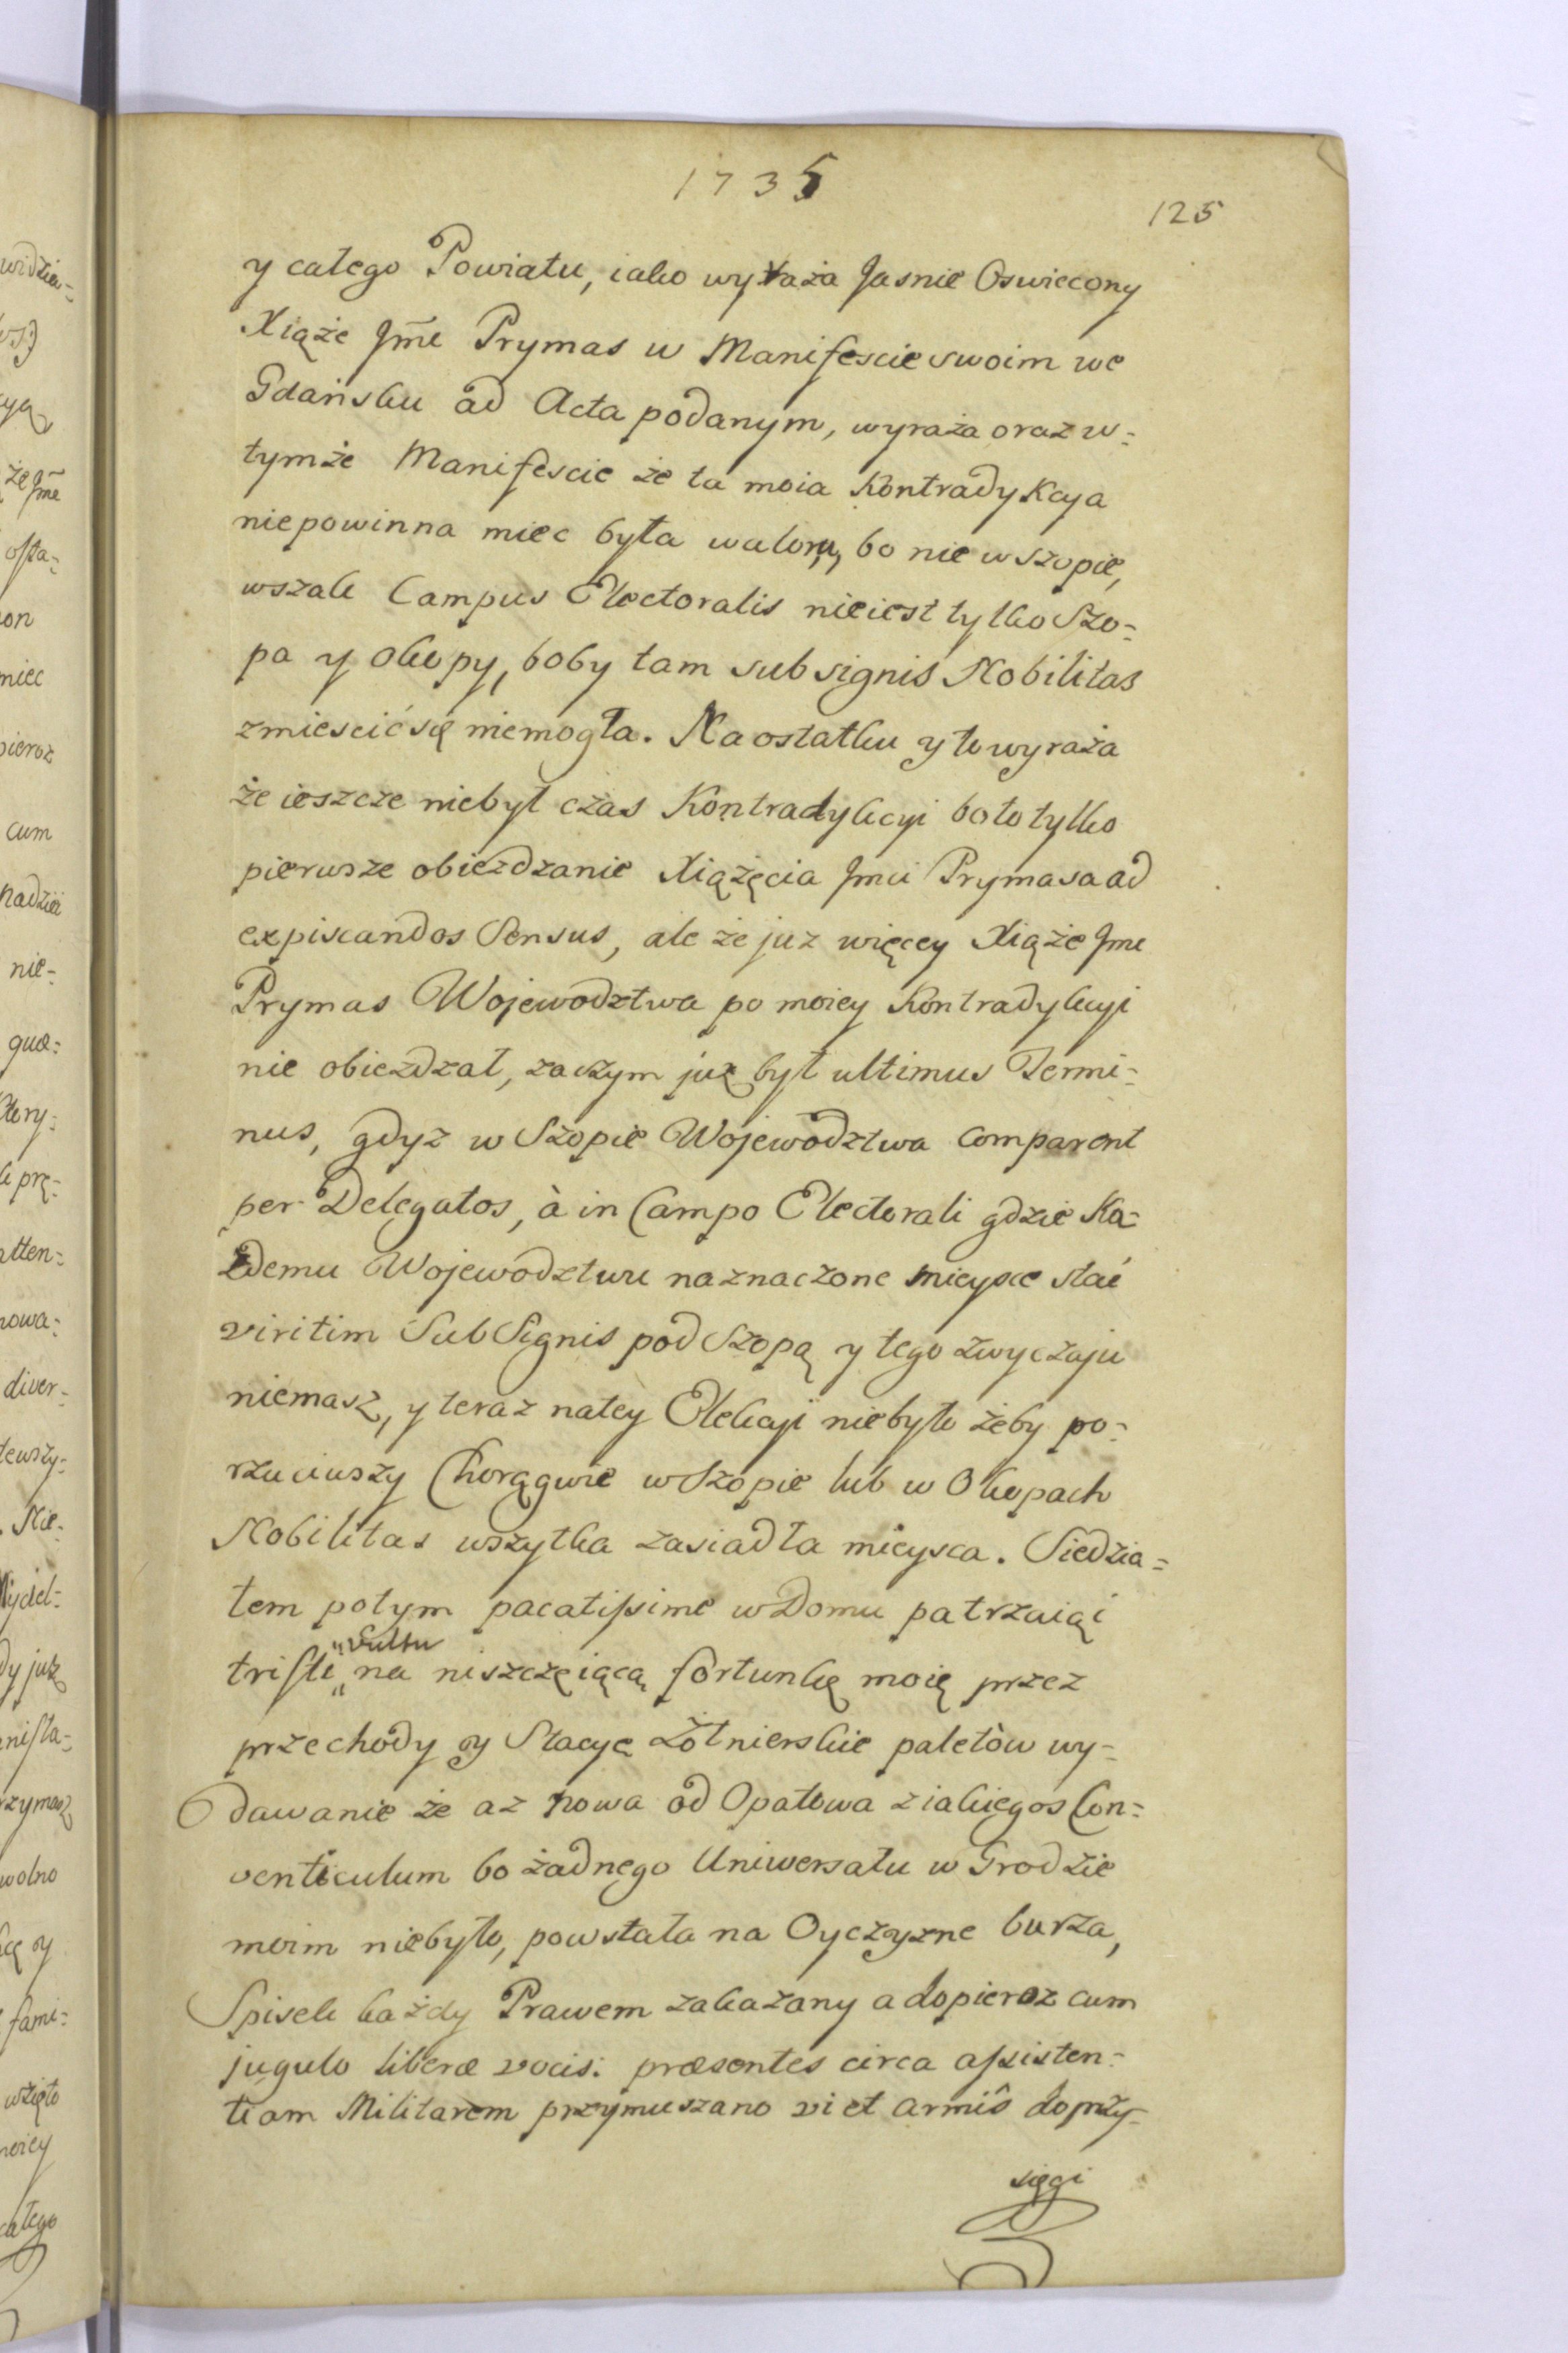 1735
125
y całego Powiatu, iako wyraża Jasnie Oswiecony
Xiąże Jm̃c Prymas w Manifescie swoim we
Gdańsku ad Acta podanym, wyraża oraz w=
tymże Manifescie że ta moia Kontradykcya
niepowinna miec była waloru, bo nie w Szopie,
wszak Campus Electoralis nieiest tylko Szo=
pa y okopy, boby tam sub signis Nobilitas
zmiescić się niemogła. Na ostatku y to wyraża
że ieszcze niebył czas Kontradykcyi bo to tylko
pierwsze obiezdzanie Xiążęcia Jmci Prymasa ad
expiscandos Sensus, ale że juz więcey Xiąże Jmc
Prymas Wojewodztwa po moiey Kontradykcyi
nie obiezdzał, zaczym już był ultimus Termi=
nus, gdyz w Szopie Wojewodztwa comparent
per Delegatos, à in Campo Electorali gdzie Ka=
żdemu Wojewodztwu naznaczone mieysce stać
viritim Sub Signis pod Szopą y tego zwyczaju
niemasz, y teraz na tey Elekcyi niebyło żeby po=
rzuciwszy Chorągwie w Szopie lub w Okopach
Nobilitas wszytka zasiadła mieysca. Siedzia=
łem potym pacatissime w Domu patrzaiąc
tristi vultu na niszczęiącą fortunkę moię przez
przechody y Stacye Żołnierskie paletòw wy=
dawanie że az nowa od Opatowa z iakiegos Con=
venticulum bo żadnego Uniwersału w Grodzie
moim niebyło, powstała na Oyczyzne burza,
Spisek każdy Prawem zakazany a dopieroz cum
jugulo liberæ vocis: præsentes circa assisten=
tiam Militarem przymuszano vi et armis do przy=
sięgi